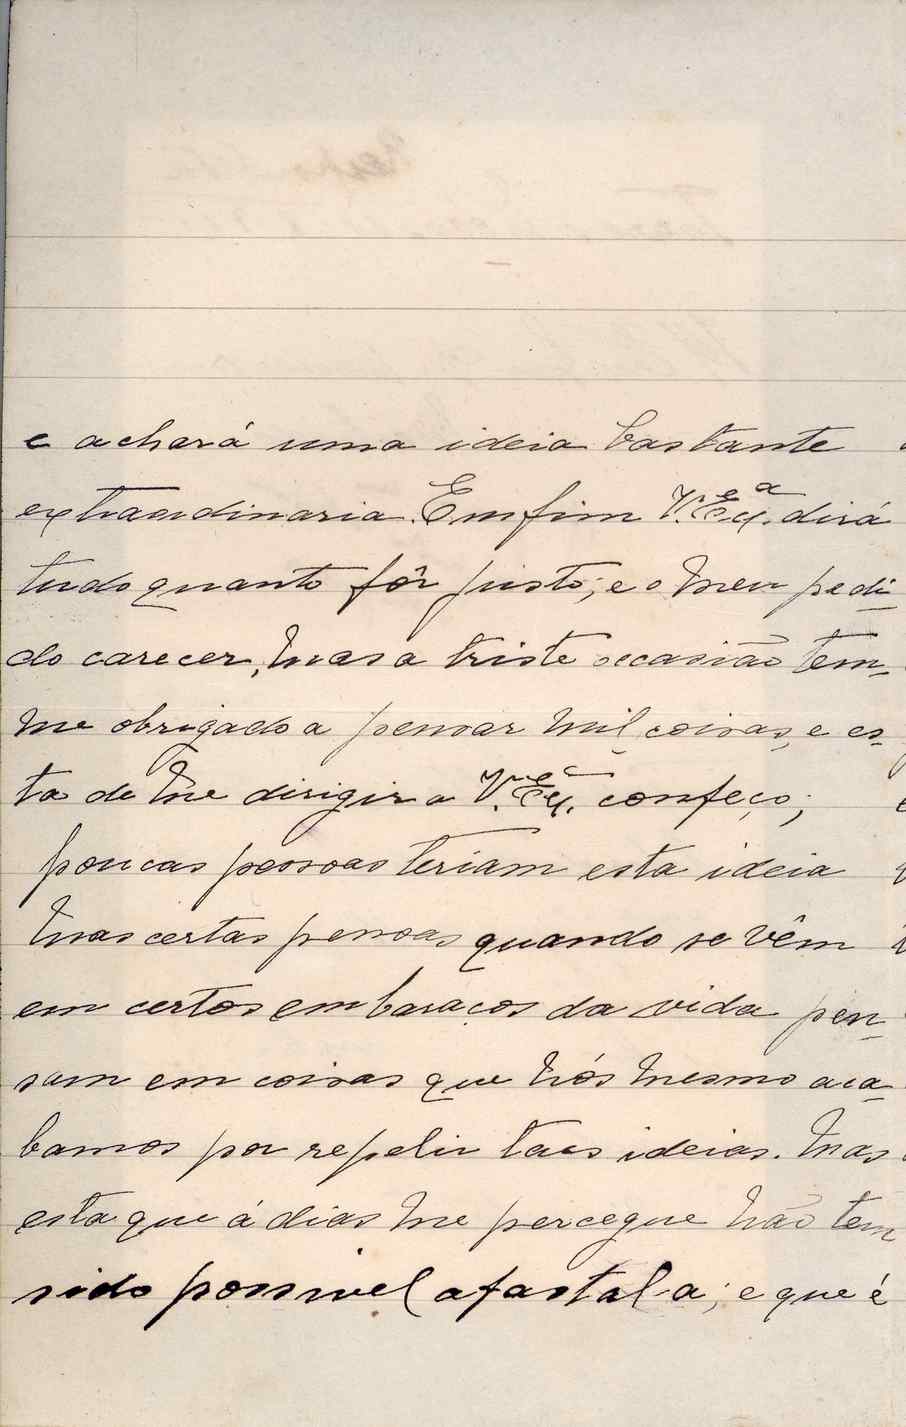 e achará uma ideia bastante
extraordinaria. Emfim V. Ex.ª dirá
tudo quanto fôr justo; e o meu pedi-
do carecer, mas a triste occasião tem-
me obrigado a pensar mil coisas, e es-
ta de me dirigir a V. Ex.ª confeço;
poucas pessoas teriam esta ideia
mas certas pessoas quando se vêm
em certos embaraços da vida pen-
sam em coisas que nós mesmo aca-
bamos por repelir taes ideias. Mas
esta que á dias me percegue não tem
sido possivel afastal-a; e que é